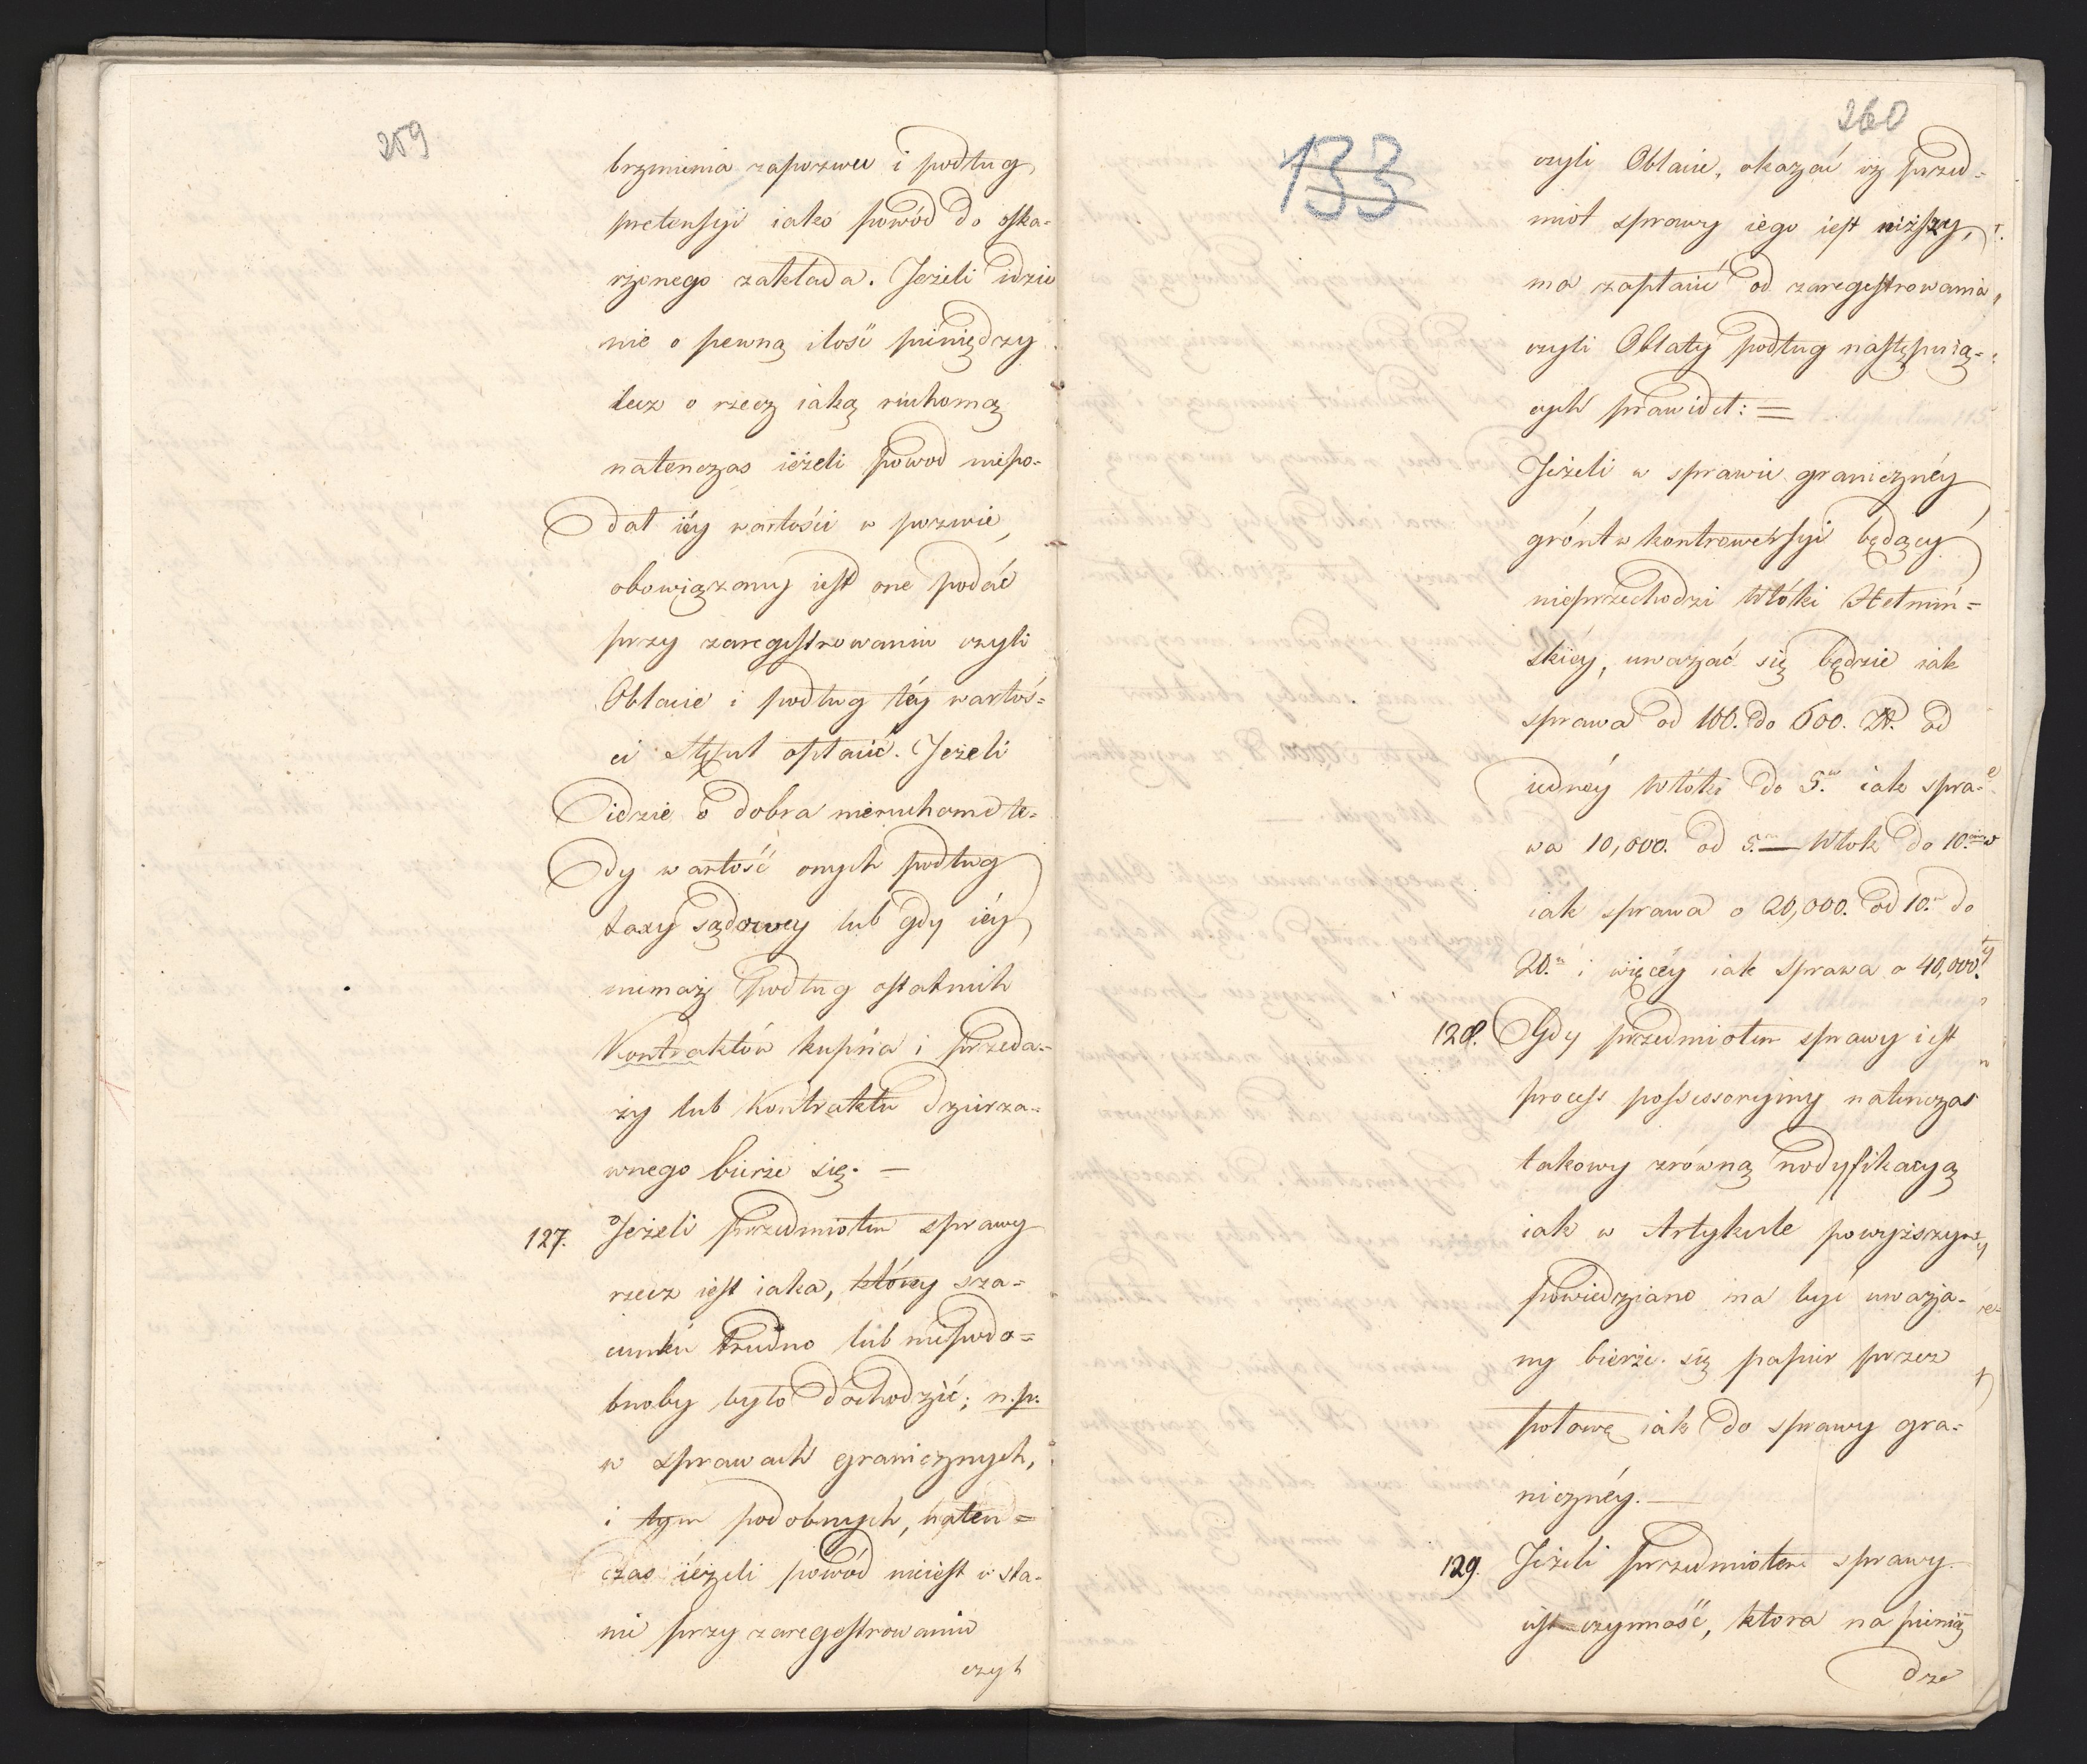 259
brzmienia zapozwu i podług
pretensyi iako powód do oska-
rżonego zakłada. Jeżeli idzie
nie o pewną ilość pieniędzy
lecz o rzecz iaką ruchomą
natenczas ieżeli powod niepo-
dał iéy wartości w pozwie,
obowiązany iest one podać
przy zaregestrowaniu czyli
Oblacie i podług téy wartoś-
ci Stępel opłacić. Jeżeli
idzie o dobra nieruchome te-
dy wartość onych podług
taxy sądowey lub gdy iéy
niemasz podług ostatnich
Kontraktów kupna i przeda-
ży lub Kontraktu dzierza-
wnego bierze się. —
127. Jeżeli przedmiotem sprawy
rzecz iest iaka, któréy sza-
cunku trudno lub niepodo=
bnoby było dochodzić; n.p.
w sprawach granicznych,
i tym podobnych, naten=
czas ieżeli powód nieiest w sta-
nie przy zaregestrowaniu
czyli
133
260
czyli Oblacie, okazać iż przed-
miot sprawy iego iest niższy,
ma zapłacić od zaregestrowania
czyli Oblaty podług następuią-
cych prawideł: =
Jeżeli w sprawie granicznéy
grónt w kontrowersyi będący
nieprzechodzi Włóki Hełmiń=
skiey, uważać się będzie iak
sprawa od 100. do 600. Zł. od
iednéy Włóki do 5. iak spra-
wa 10,000. od 5. — Włok do 10.
iak sprawa o 20,000. od 10. do
20. i więcéy iak sprawa o 40,000.
128. Gdy przedmiotem sprawy iest
process possessoryiny natenczas
takowy zrówną modyfikacyą
iak w Artykule powyższym
powiedziano ma być uważa-
ny bierze się papier przez
połowę iak do sprawy gra-
nicznéy. —
129. Jeżeli przedmiotem sprawy
iest czynność, ktora na pienią
dze